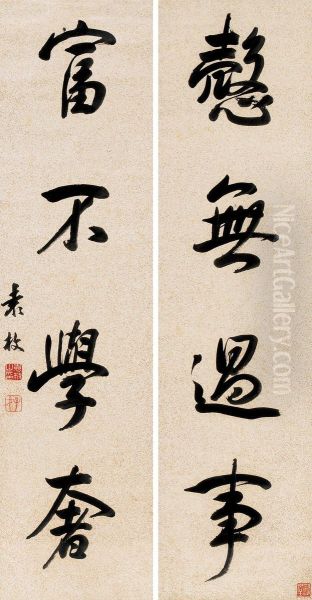 慤無過事
富不學奢
袁枚
NiceArtGallery.com